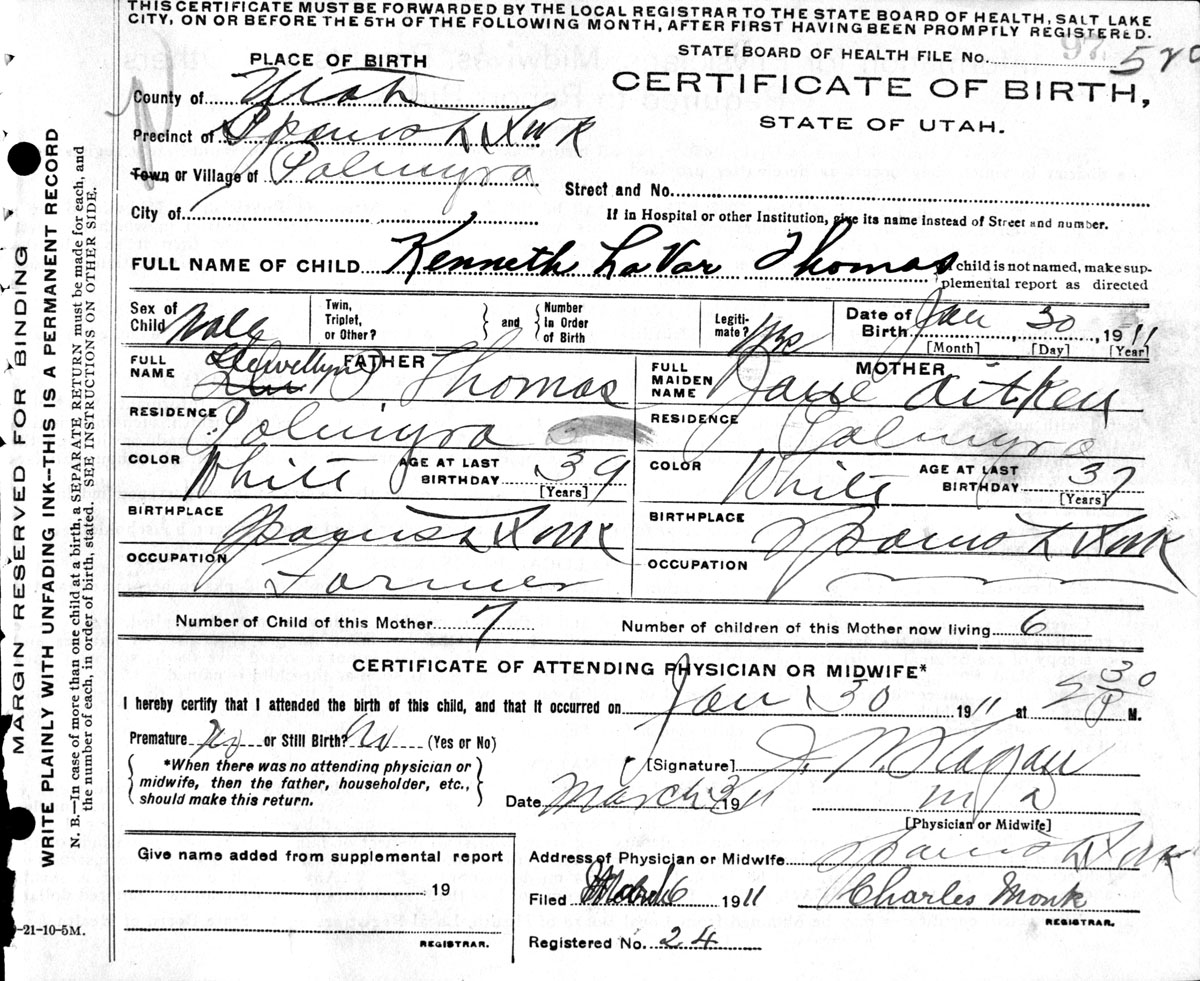 THIS CERTIFICATE MUST BE FORWARDED BY THE LOCAL REGISTRAR TO THE STATE BOARD OF HEALTH, SALT LAKE
CITY, ON OR BEFORE THE 5TH OF THE FOLLOWING MONTH, AFTER FIRST HAVING BEEN PROMPTLY REGISTERED.
STATE BOARD OF HEALTH FILE No.
CERTIFICATE OF BIRTH,
STATE OF UTAH.
PLACE OF BIRTH
County of Utah
Precinct of Spanish Fork
Town or Village of Palmyra
Street and No.
City of
If in Hospital or other Institution, give its name instead of Street and number.
FULL NAME OF CHILD Kenneth LaVar Thomas
If child is not named, make sup-
plemental report as directed
Sex of Child Male
Twin, Triplet, or Other?
and
Number in Order of Birth
Legiti-mate? Yes
Date of Birth Jan 30, 1911
[Month] [Day] [Year]
FATHER
FULL NAME Llewellyn D Thomas
RESIDENCE Palmyra
COLOR White AGE AT LAST BIRTHDAY 39
[Years]
BIRTHPLACE Spanish Fork
OCCUPATION Farmer
MOTHER
FULL MAIDEN NAME Jane Aitken
RESIDENCE Palmyra
COLOR White AGE AT LAST BIRTHDAY 37
[Years]
BIRTHPLACE Spanish Fork
OCCUPATION
Number of Child of this Mother 7
Number of children of this Mother now living 6
CERTIFICATE OF ATTENDING PHYSICIAN OR MIDWIFE*
I hereby certify that I attended the birth of this child, and that it occurred on Jan 30 1911 at 2 30 P M.
Premature No or Still Birth? No (Yes or No)
*When there was no attending physician or
midwife, then the father, householder, etc.,
should make this return.
[Signature]
Date March 3 1911 M D
[Physician or Midwife]
Give name added from supplemental report
19
REGISTRAR.
Address of Physician or Midwife Spanish Fork
Filed 6 1911 Charles Monk
REGISTRAR.
Registered No. 24
-21-10-5M.
MARGIN RESERVED FOR BINDING
WRITE PLAINLY WITH UNFADING INK—THIS IS A PERMANENT RECORD
N. B.—In case of more than one child at a birth, a SEPARATE RETURN must be made for each, and
the number of each, in order of birth, stated. SEE INSTRUCTIONS ON OTHER SIDE.